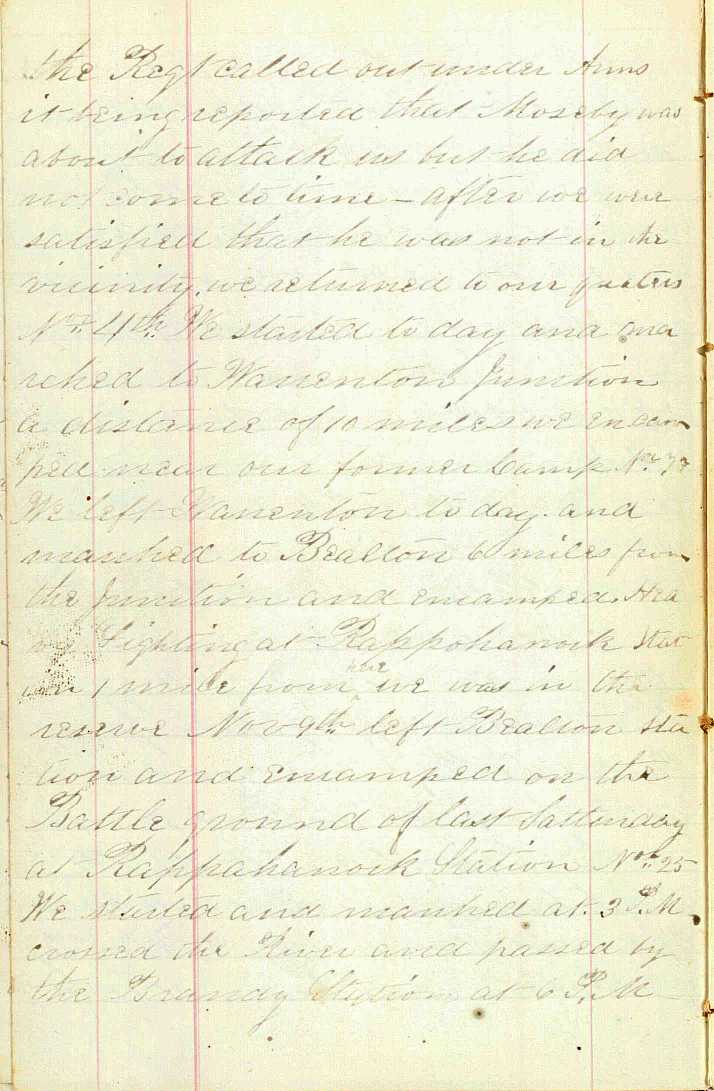 the Regt called out under Arms
it being reported that Moseby was
about to attack us but he did
not come to time – after we were
satisfied that he was not in the
vicinity, we returned to our quaters
Nv. 4th. We started to day and mar
rched to Warrenton Junction
a distance of 10 miles we encam
ped near our former Camp. Nv. 7th
We left Warrenton to day. and
marched to Bealton 6 miles from
the Junction and encamped. Hea
vy Fighting at Rappohanock Stat
ion 1 mile from here we was in the
reserve Nov 9th left Bealton sta
tion and encamped on the
Battle ground of last Satturday
at Rappahanock Station Nov. 25
We started and marched at 3 P.M.
crossed the River and passed by
the Brandy Station at 6 P.M